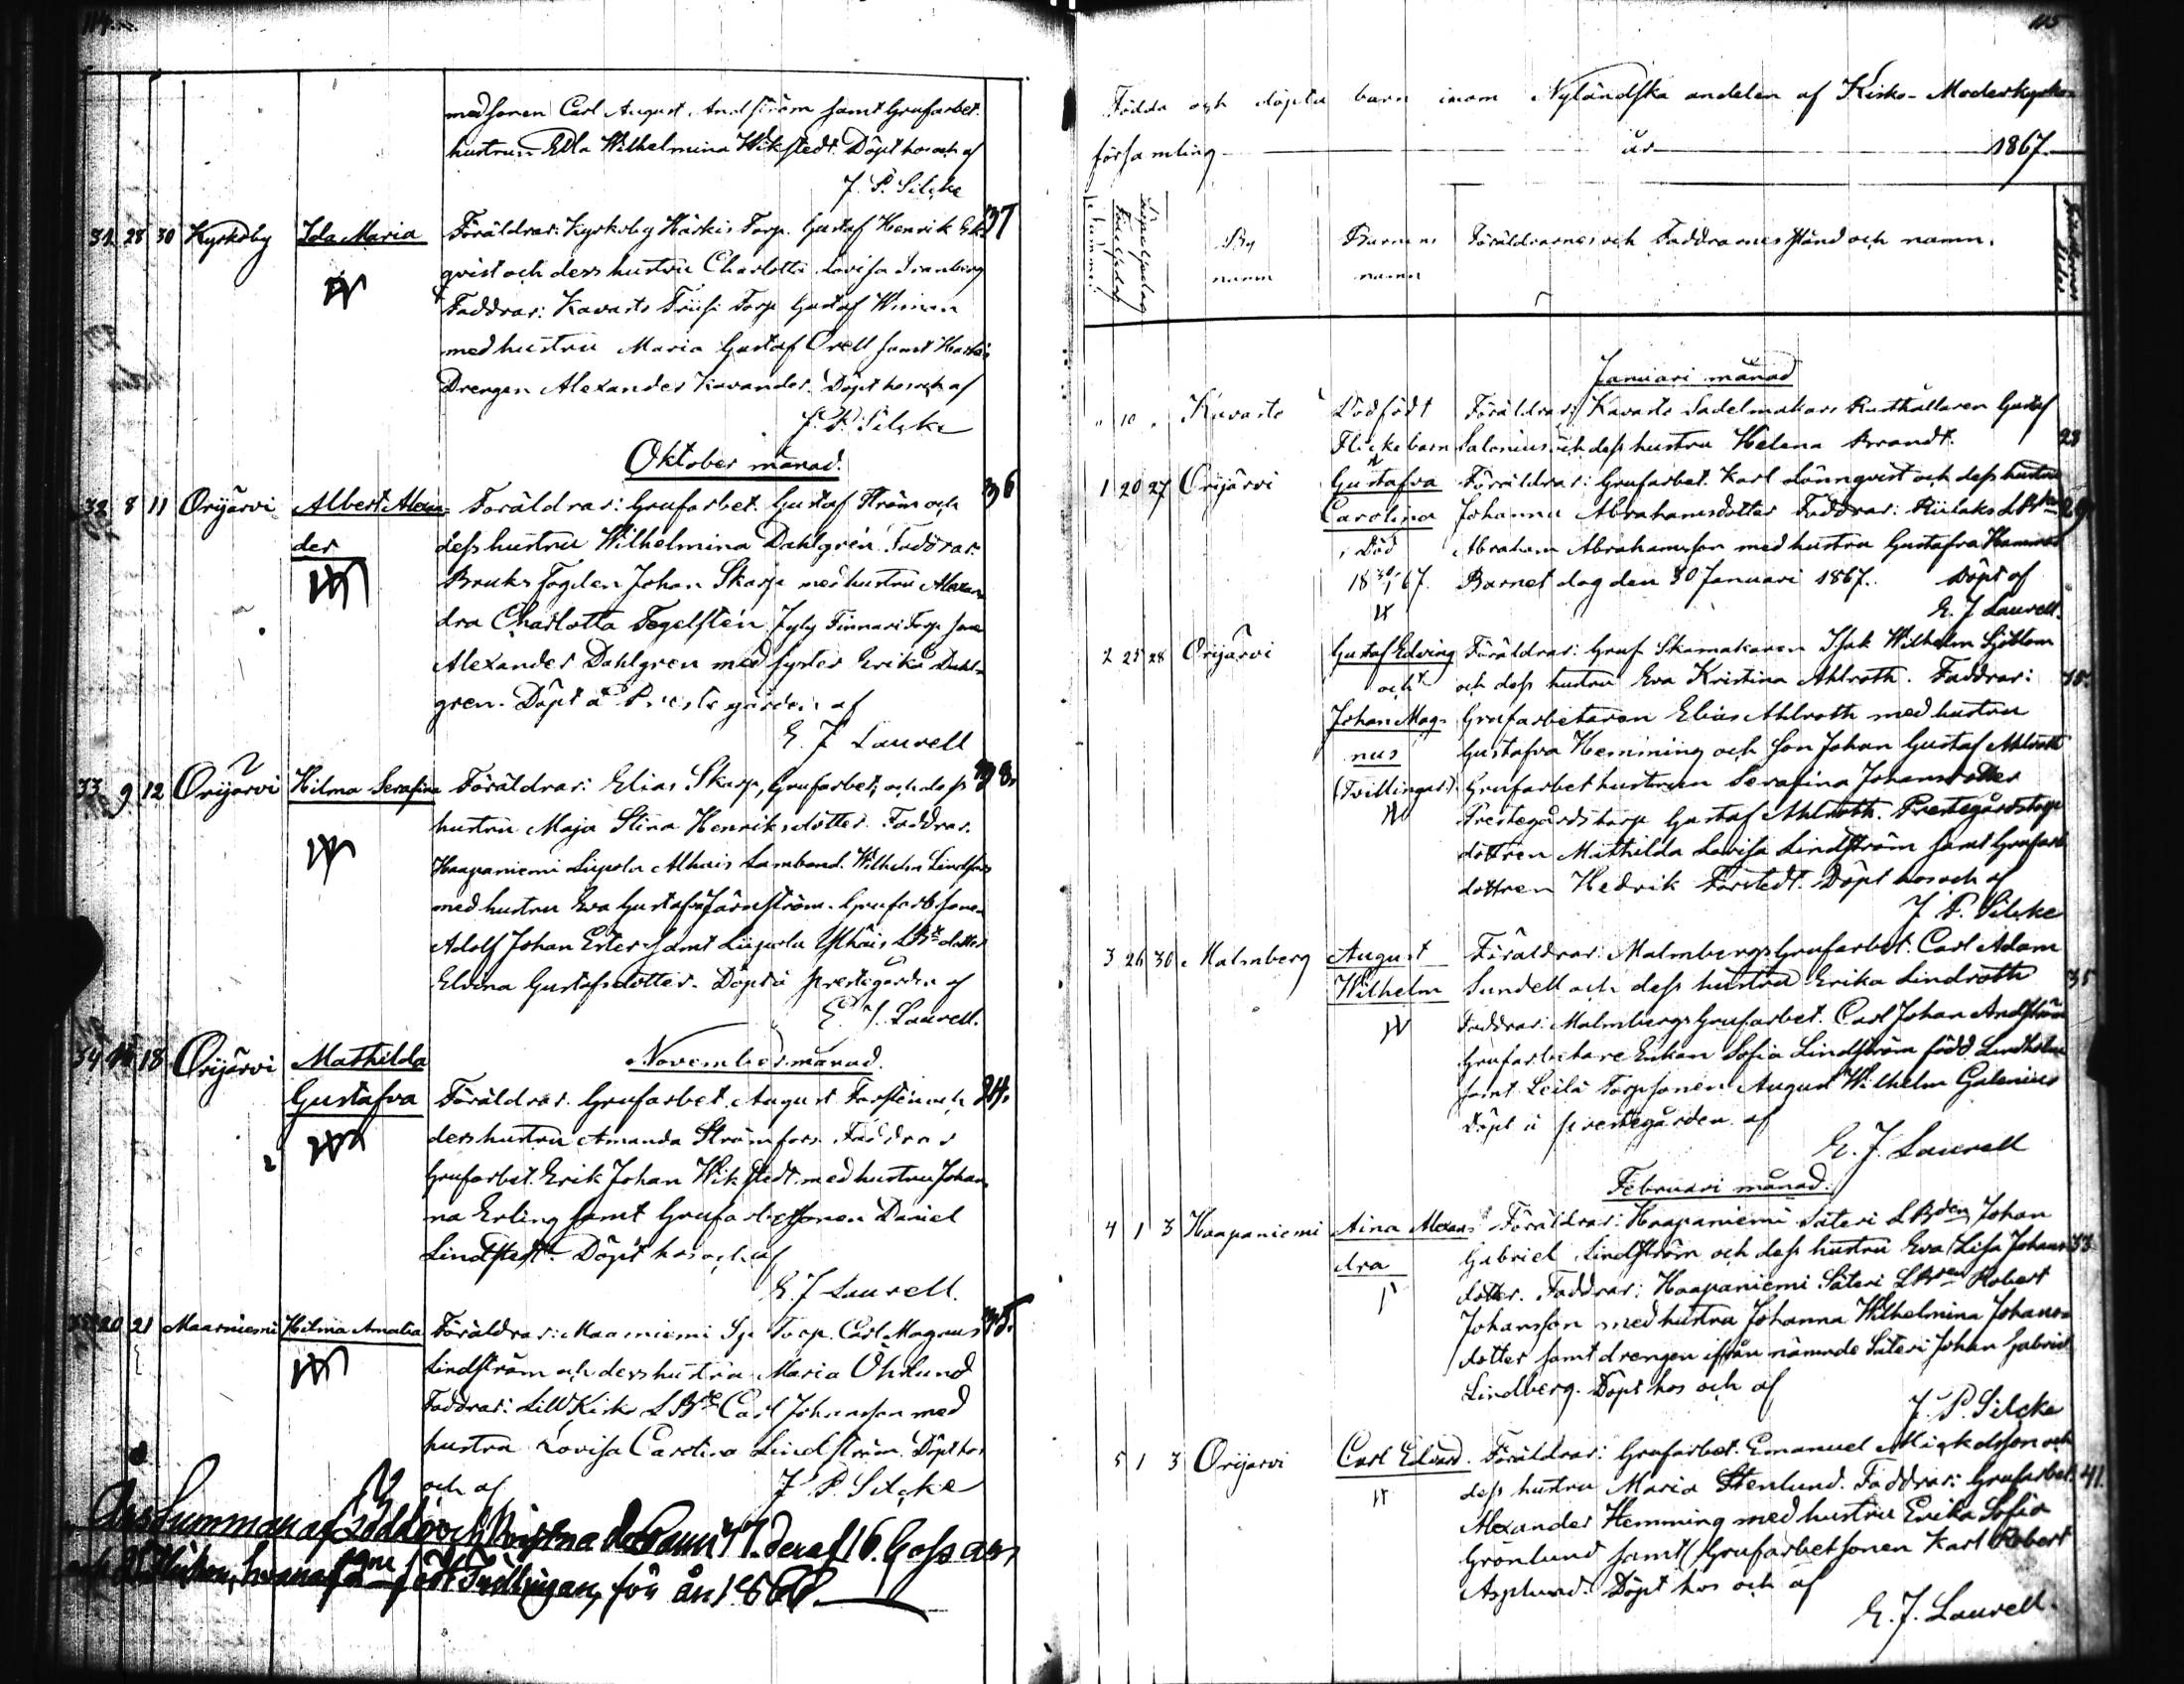 114
med sonen Carl August Andström samt Grufarbet.
hustrun Edla Wilhelmina Wikstedt. Döpt hos och af
J. P. Silcke
31 28 30 Kyrkoby Ida Maria Föräldrar: Kyrkoby Härkis Torp. Gustaf Henrik Ek- 37
qvist och dess hustru Charlotta Lovisa
Faddrar: Kavasto Torp Gustaf
med hustru Maria Gustaf Orell samt
Drengen Alexander Kavander. Döpt hos och af
J. P. Silcke
Oktober månad.
32 8 11 Orijärvi Albert Alexan- Föräldrar: Grufarbet. Gustaf Ström och 36
der dess hustru Wilhelmina Dahlgren. Faddrar:
Bruks Fogden Johan Skarp med hustru Alexan
dra Charlotta Tegelsten Torp sone
Alexander Dahlgren med syster Erika Dahl-
gren. Döpt å Prestegården af
E. J. Laurell
33 9 12 Orijärvi Hilma Serafina Föräldrar: Elias Skarp, Grufarbet. och dess 38.
hustru Maja Stina Henriksdotter. Faddrar.
Haapaniemi Liipola Alhais Lambond. Wilhelm Lindfors
med hustru Eva Gustafva Järnström. Grufarb.sonen
Adolf Johan Ester samt Liipola Alhais LBs dotter
Elvina Gustafsdotter. Döpt å prestegården af
E. J. Laurell.
34 18 Orijärvi Mathilda November månad.
Gustafva Föräldrar. Grufarbet. August Forsten och 24.
dess hustru Amanda Strömfors. Faddrar
Grufarbet. Erik Johan Wikstedt med hustru Johan
na Erling samt Grufarbetsonen Daniel
Lindstedt. Döpt hos och af
E. J. Laurell.
35 20 21 Maarniemi Hilma Amalia Föräldrar: Maarniemi Torp. Carl Magnus 35.
Lindström och dess hustru Maria Öhrlund
Faddrar: Lill Kisko LBn Carl Johansson med
hustru Lovisa Carolina Lindström. Döpt hos
och af J. P. Silcke
Års Summan af födde och Kristna deraf 16. Gossar
och Flickor, hvaraf ett par Tvillingar, för år 1866.
115
Födda och döpta barn inom Nyländska andelen af Kisko-Moderkyrko-
församling år 1867.
Nummer Födelsedag Döpelsedag By namn Barnens namn Föräldrarnes och Faddrarnes stånd och namn.
Januari månad
" 10 . Kavasto Dödfödt Föräldrar: Kavasto Sadelmakars Rusthållaren Gustaf
Flickebarn Salenius och dess hustru Helena Brandt. 28
1 20 27 Orijärvi Gustafva Föräldrar: Grufarbet. Karl Lönnqvist och dess hustru
Carolina Johanna Abrahamsdotter Faddrar: LBn 29
Död Abraham Abrahamsson med hustru Gustafva
18 30/1 67. Barnet dog den 30 Januari 1867. Döpt af
E. J. Laurell.
2 25 28 Orijärvi Gustaf Edving Föräldrar: Gruf Skomakaren Isak Wilhelm Sjöblom
och och dess hustru Eva Kristina Ahlroth. Faddrar:
Johan Mag- Grufarbetaren Elias Ahlroth med hustru
nus Gustafva Hemming och son Johan Gustaf Ahlroth
(Tvillingar) Grufarbet hustrun Serafina Johansdotter
Prestegårdstorp. Gustaf Ahlroth. Prestegårdstorp
dottren Mathilda Lovisa Lindström samt Grufarb.
dottren Hedvik Forstedt. Döpt hos och af
J. P. Silcke
3 26 30 Malmberg August Föräldrar: Malmbergs Grufarbet. Carl Adam
Wilhelm Sundell och dess hustru Erika Lindroth 35
Faddrar: Malmbergs Grufarbet. Carl Johan Andström
Grufarbetare Enkan Sofia Lindström född Lindholm
samt Leilä Torpsonen August Wilhelm Galenius
Döpt å prestegården af
E. J. Laurell
Februari månad.
4 1 3 Haapaniemi Aina Alexan- Föräldrar: Haapaniemi Säteri LBden Johan
dra Gabriel Lindström och dess hustru Eva Lisa Johans 33
dotter. Faddrar: Haapaniemi Säteri LBden Robert
Johansson med hustru Johanna Wilhelmina Johans-
dotter samt drengen ifrån nämnde Säteri Johan Gabriel
Lindberg. Döpt hos och af
J. P. Silcke
5 1 3 Orijärvi Carl Edvard. Föräldrar: Grufarbet. Emanuel Mickelsson och
dess hustru Maria Stenlund. Faddrar: Grufarbet. 41.
Alexander Hemming med hustru Erika Sofia
Grönlund samt Grufarbetsonen Karl Robert
Asplund. Döpt hos och af
E. J. Laurell.